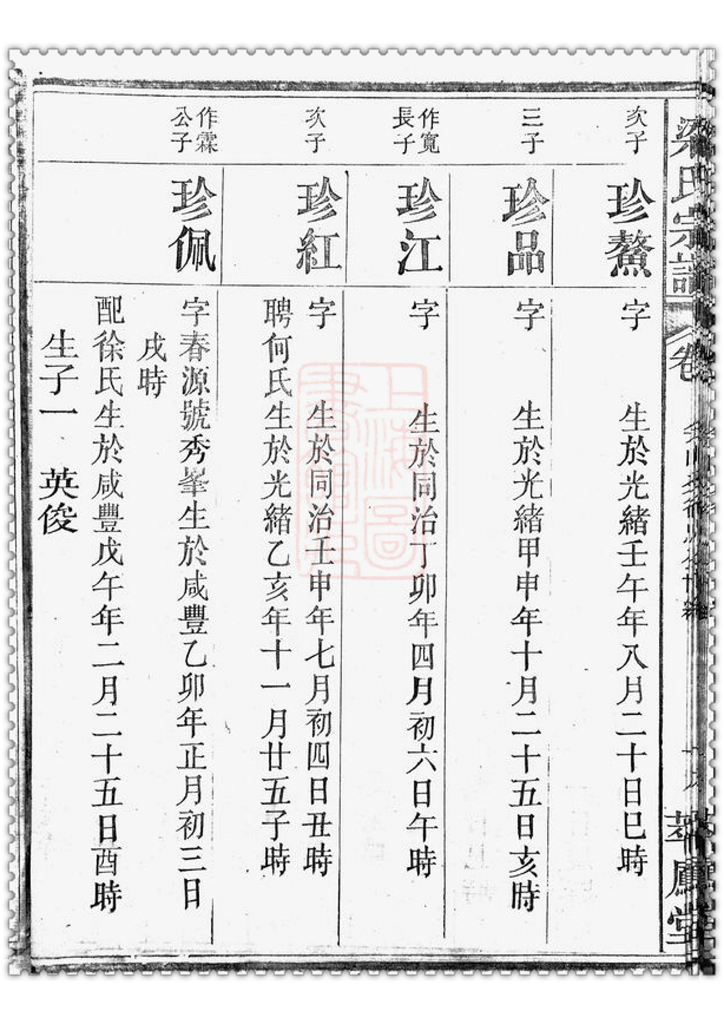 梁氏宗譜
卷
次子
珍鰲
字 生於光緒壬午年八月二十日巳時
三子
珍品
字 生於光緒甲申年十月二十五日亥時
作寬
長子
珍江
字 生於同治丁卯年四月初六日午時
次子
珍紅
字 生於同治壬申年七月初四日丑時
聘何氏生於光緒乙亥年十一月廿五子時
作霖
公子
珍佩
字春源號秀峯生於咸豐乙卯年正月初三日
戌時
配徐氏生於咸豐戊午年二月二十五日酉時
生子一 英俊
上海圖